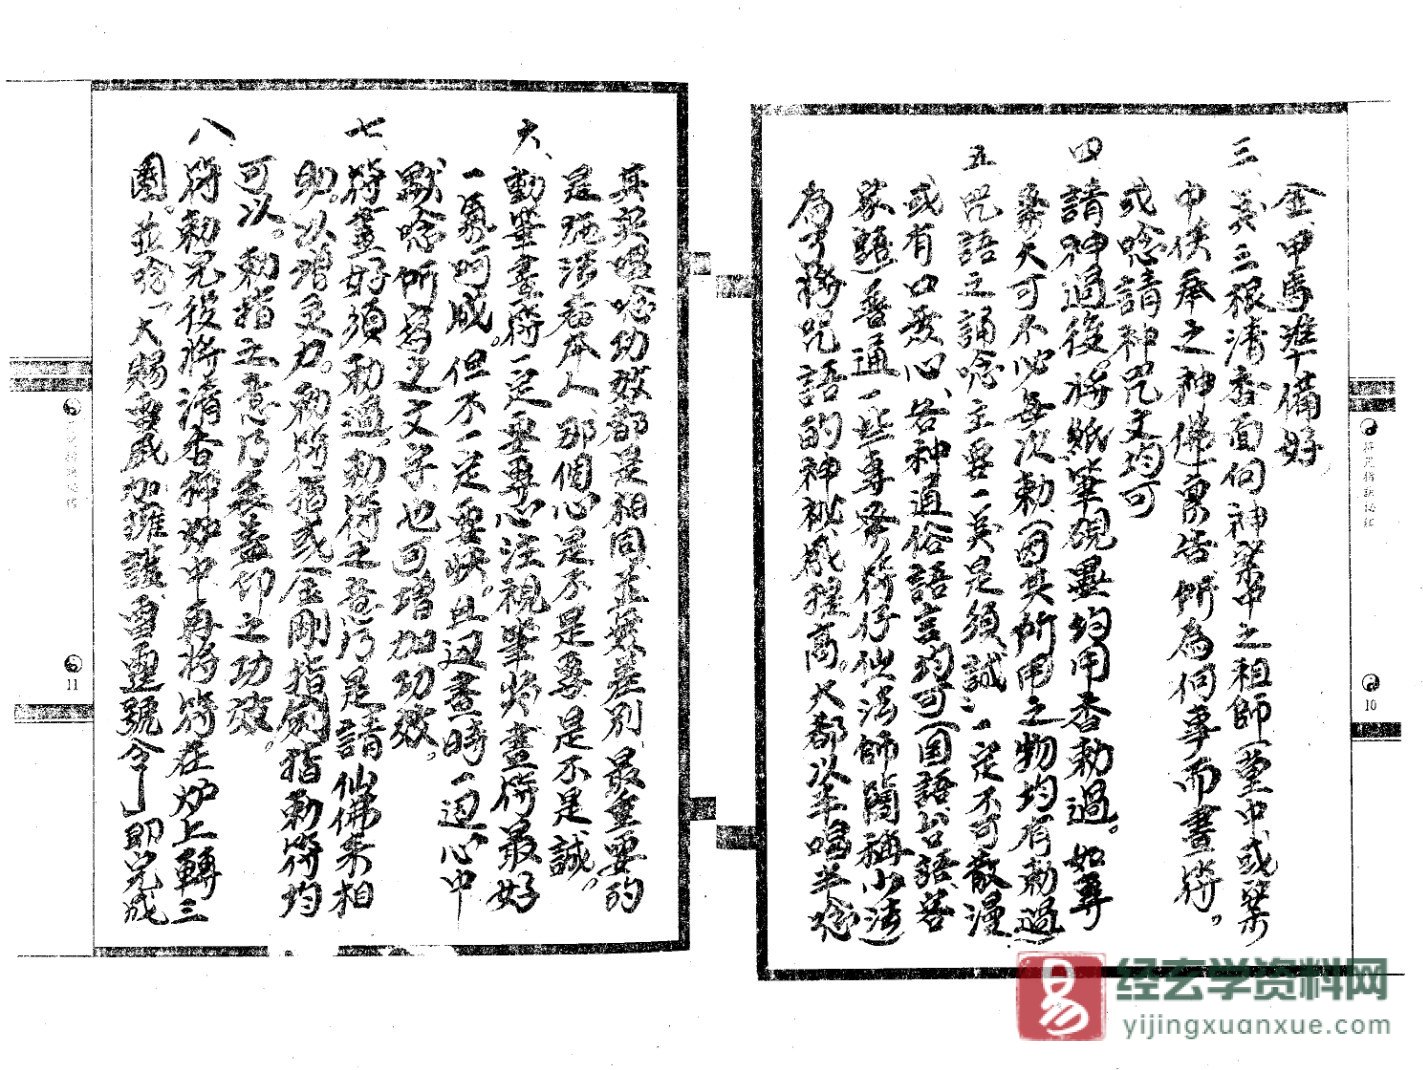 金甲馬準備好
三、燃三根清香面向神案中之祖師(壇中或案
中供奉之神佛)稟告所為何事而畫符。
或唸請神咒文均可
四 請神過後,將紙筆硯墨均用香勅過。如尋
常天可不必每次勅,(因其所用之物均有勅過)
五 咒語之誦唸主要一英是須誠,一定不可散漫
或有口無心、各神通俗語言均可(国語、台語、若
家語)普通一些專
為了將咒語的神秘感提高。大都以半唱半唸
其訣唱唸功效都是相同,並無差別,最重要的
是施法者本人、那個心是不是專,是不是誠。
六、動筆畫符一定要專心注視筆尖,畫符最好
一氣呵成。但不一定要快。且邊畫時一邊心中
默唸所寫之文字也可增加功效。
七、符畫好須勅過,勅符之意乃是請仙佛來相
助。以增靈力。勅符指或(金剛指)劍指勅符均
可以。勅指之意乃為蓋印之功效。
八、符勅完後將清香神炉中再將符在炉上轉三
圈。並唸「大賜靈威加擁護雷霆號令」即完成
11
10
易
经玄学资料网
yijingxuanxue.com